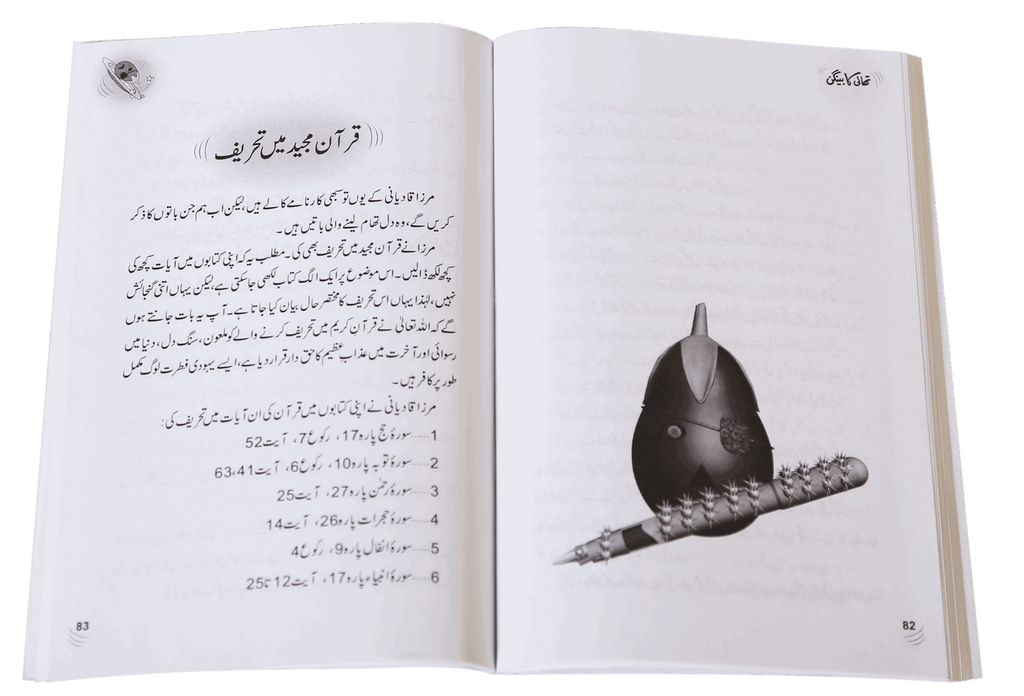 تھالی کا بینگن
82
قرآن مجید میں تحریف
مرزا قادیانی کے یوں تو سبھی کارنامے کالے ہیں، لیکن اب ہم جن باتوں کا ذکر
کریں گے، وہ دل تھام لینے والی باتیں ہیں۔
مرزا نے قرآن مجید میں تحریف بھی کی۔ مطلب یہ کہ اپنی کتابوں میں آیات کچھ کی
کچھ لکھ ڈالیں۔ اس موضوع پر ایک الگ کتاب لکھی جاسکتی ہے، لیکن یہاں اتنی گنجائش
نہیں، لہٰذا یہاں اس تحریف کا مختصر حال بیان کیا جاتا ہے۔ آپ یہ بات جانتے ہوں
گے کہ اللہ تعالیٰ نے قرآن کریم میں تحریف کرنے والے کو ملعون، سنگ دل، دنیا میں
رسوائی اور آخرت میں عذاب عظیم کا حق دار قرار دیا ہے، ایسے یہودی فطرت لوگ مکمل
طور پر کافر ہیں۔
مرزا قادیانی نے اپنی کتابوں میں قرآن کی ان آیات میں تحریف کی:
1......سورۂ حج پارہ 17، رکوع 7، آیت 52
2......سورۂ توبہ پارہ 10، رکوع 6، آیت 41،63
3......سورۂ رحمٰن پارہ 27، آیت 25
4......سورۂ حجرات پارہ 26، آیت 14
5......سورۂ انفال پارہ 9، رکوع 4
6......سورۂ انبیاء پارہ 17، آیت 12 تا 25
83